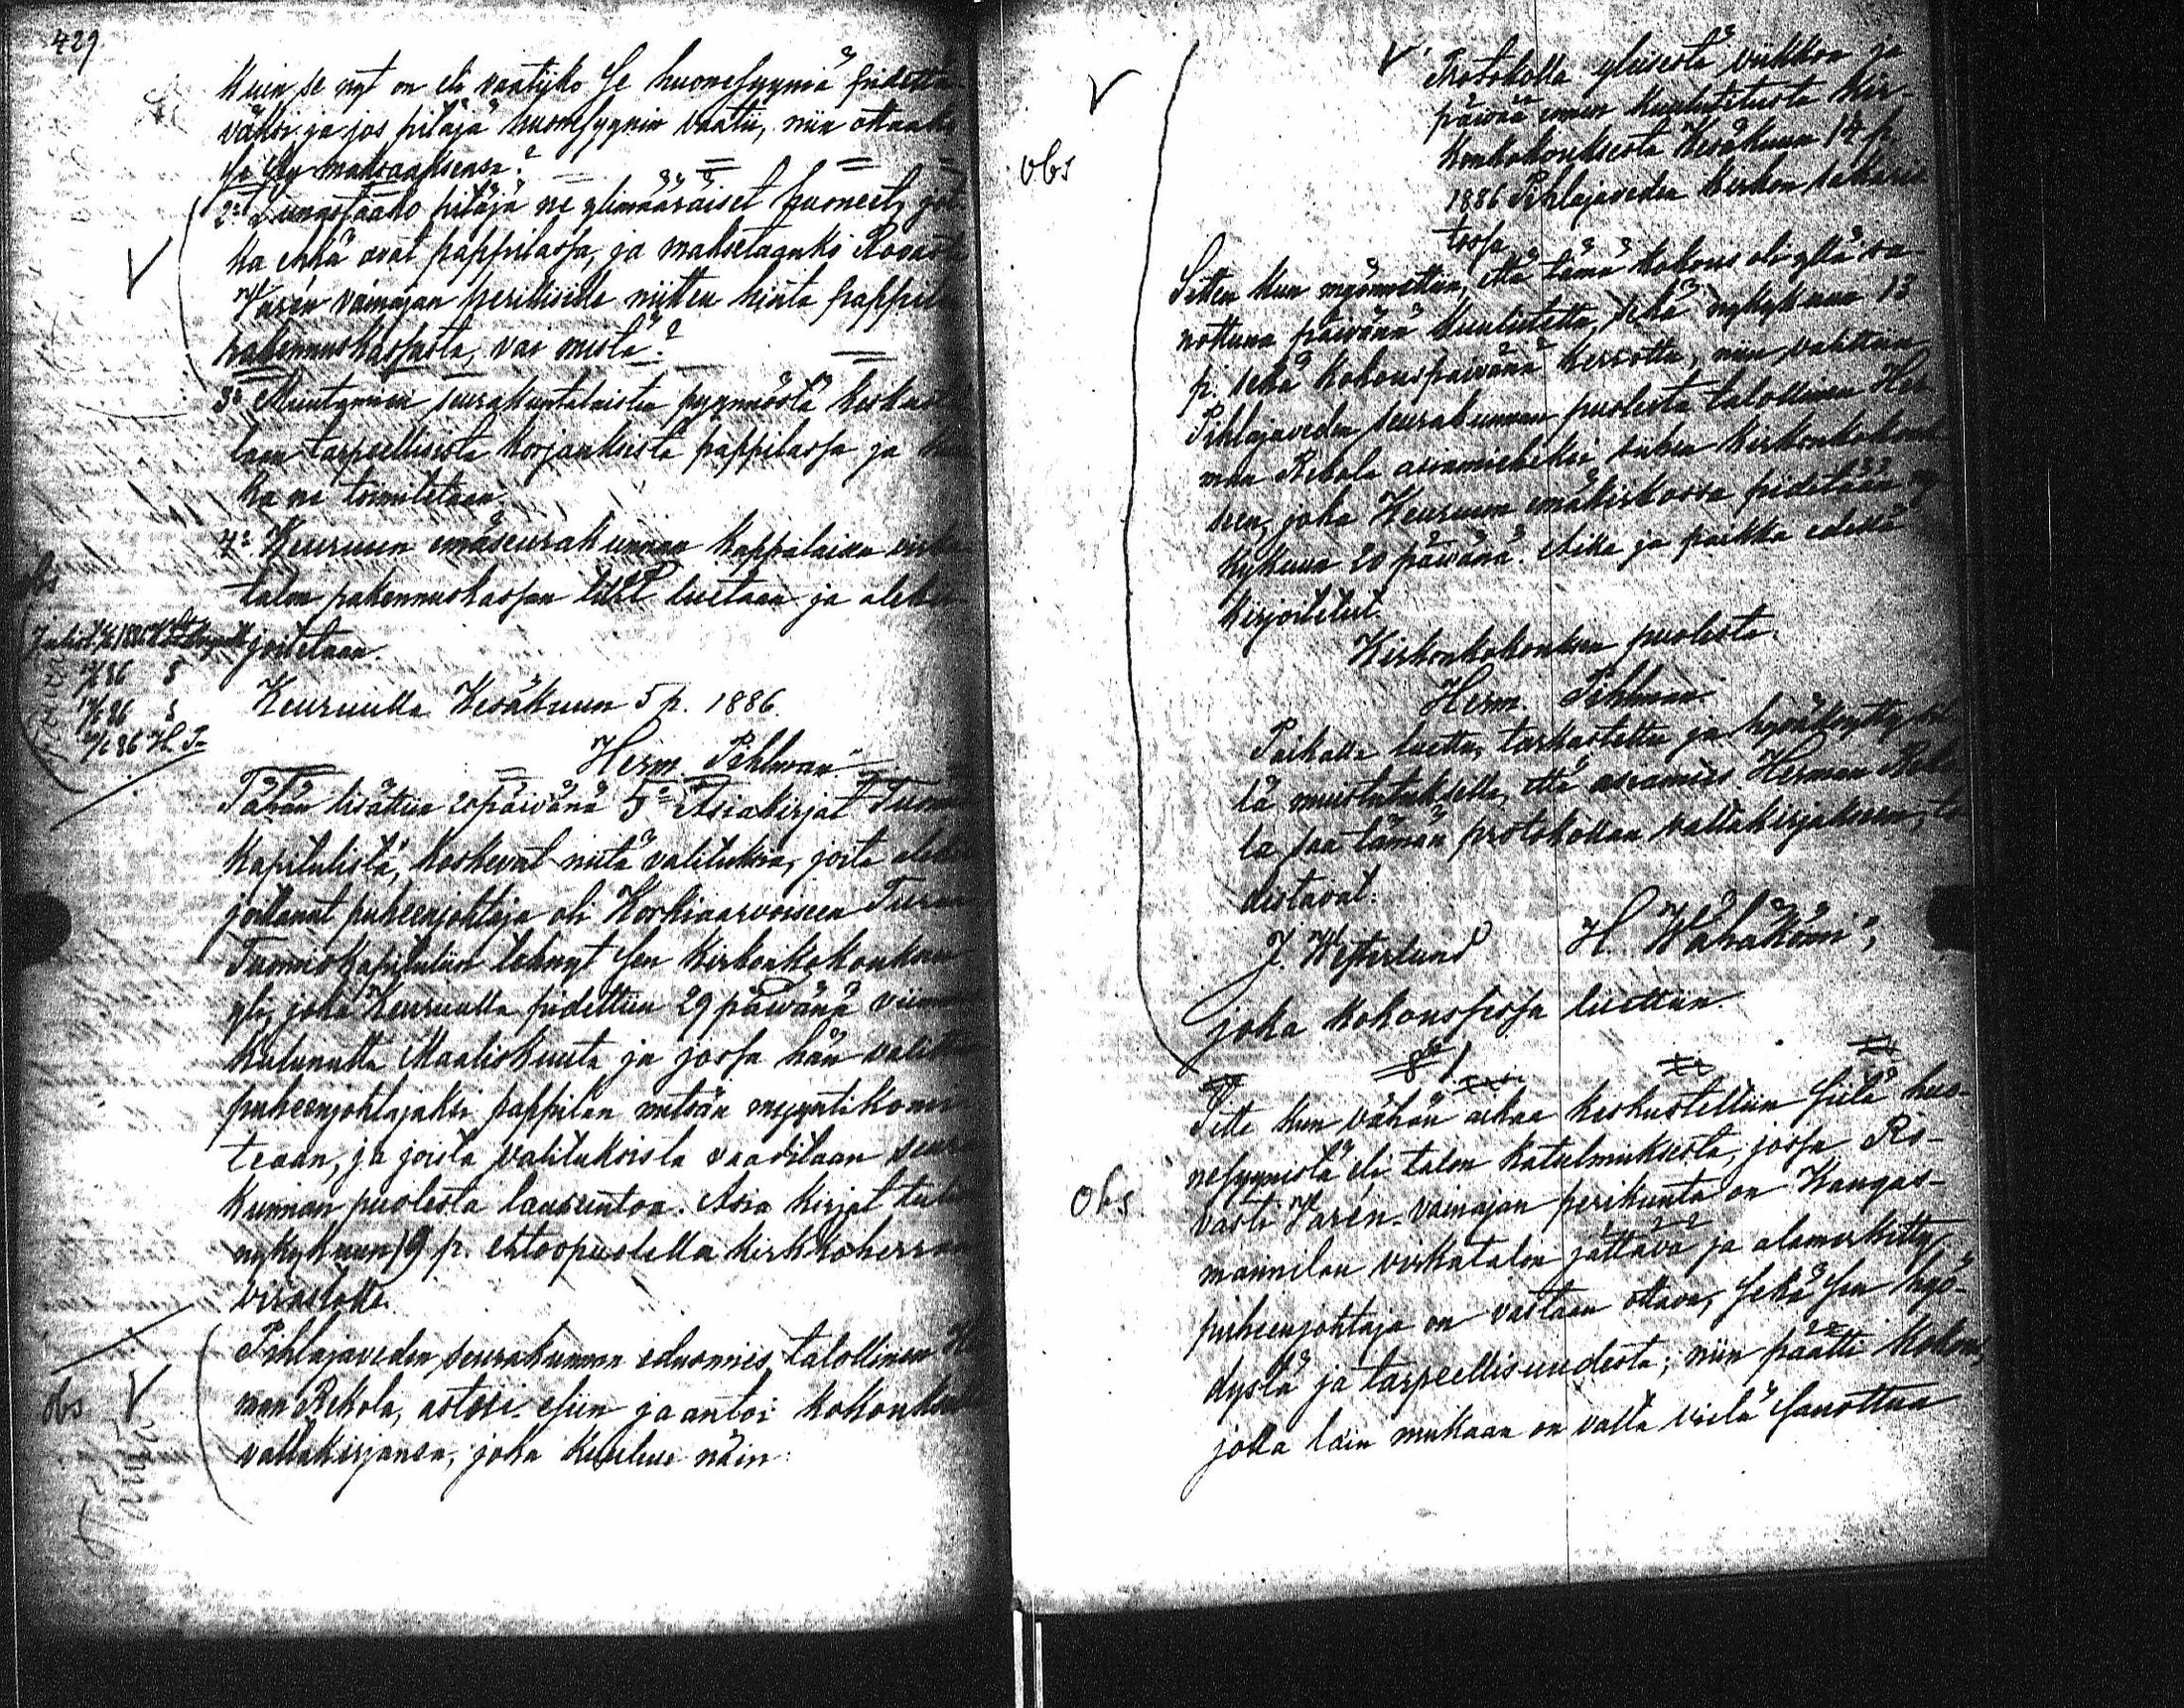 429
kuin se nyt on eli vaatiiko se huonesyyniä pidettä-
väksi ja jos pitäjä huonesyynin vaatii, niin ottaako
se sen maksaaksensa?
2:o Lunastaako pitäjä ne ylimääräiset huoneet, jot-
ka ehkä ovat pappilassa, ja maksetaanko Rovasti
Varén vainajan perillisille niitten hinta pappilan
rakennuskassasta, vai mistä?
3:o Muutamien seurakuntalaisten pyynnöstä keskustel-
laan tarpeellisista korjauksista pappilassa ja
ka ne toimitetaan.
4:o Keuruun emäseurakunnan kappalaisen virka
talon rakennuskassan tilit luetaan ja allekir-
joitetaan.
obs
13/6 86 S
14/6 86 S
20/6 86 H. P.
Keuruulla Kesäkuun 5 p. 1886.
Herm. Pihlman
Tähän lisättiin 20 päivänä 5:o Asiakirjat Tuomio
kapitulista, koskevat niitä valituksia, joita allekir
joittanut puheenjohtaja oli Korkiaarvoiseen Turun
Tuomiokapituliin tehnyt sen kirkonkokouksen
yli, joka Keuruulla pidettiin 29 päivänä viime
kulunutta Maaliskuuta ja jossa hän valittiin
puheenjohtajaksi pappilan metsän myyntikomi
teaan, ja joista valituksista vaaditaan seura
kunnan puolesta lausuntoa. Asia kirjat tuli
nykykuun 19 p. ehtoopuolella kirkkoherran
virastolle.
obs
Pihlajaveden seurakunnan edusmies, talollinen Her
man Rekola, astui esiin ja antoi kokouksen
valtakirjansa, joka kuuluu näin:
obs
Protokolla yleisestä viikkoa ja
päivää ennen kuulutetusta Kir-
konkokouksesta Kesäkuun 14 p.
1886 Pihlajaveden kirkon sakaris-
tossa
Sitten kun myönnettiin, että tämä kokous oli yllä sa-
nottuna päivänä kuulutettu, sekä nykykuun 13
p. sekä kokouspäivänä kerrottu, niin valittiin
Pihlajaveden seurakunnan puolesta talollinen Her
man Rekola asiamieheksi siihen kirkonkokouk-
seen, joka Keuruun emäkirkossa pidetään ny
kykuun 20 päivänä. Aika ja paikka edellä
kirjoitetut.
Kirkonkokouksen puolesta.
Herm. Pihlman
Paikalla luettu, tarkastettu ja hyväksytty sil-
lä muistutuksella, että asiamies Herman Reko
la saa tämän protokollan valtakirjaksensa, to
distavat:
J. Westerlund H. Wähäkönni",
joka kokouksessa luettiin.
§ 1
obs.
Sitte kun vähän aikaa keskusteltiin siitä huo-
nesyynistä eli talon katselmuksesta, jossa Ro-
vasti Varén-vainajan perikunta on Kangas-
mannilan virkatalon jättävä ja alamerkitty
puheenjohtaja on vastaan ottava, sekä sen hyö-
dystä ja tarpeellisuudesta, niin päätti kokous,
jolla lain mukaan on valta vielä sanottua